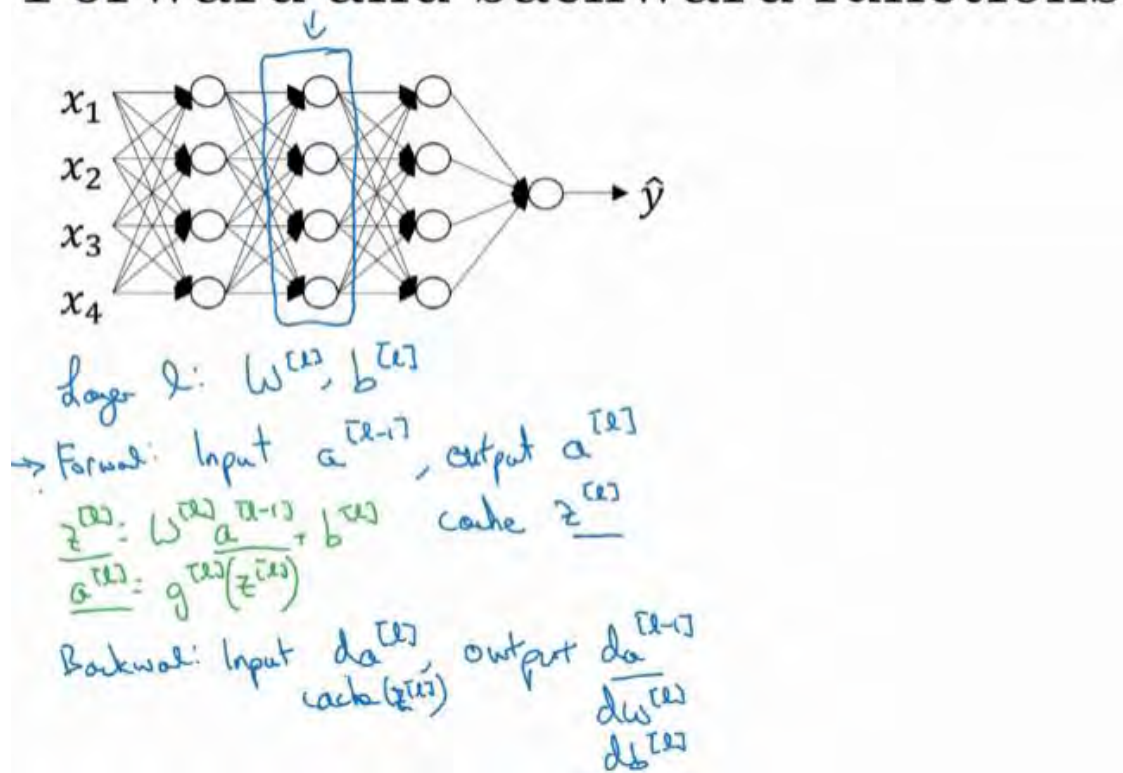 Forward and backward functions
x₁
x₂
x₃
x₄
ŷ
Layer l: W^[l], b^[l]
→ Forward: Input a^[l-1], output a^[l]
z^[l] = W^[l] a^[l-1] + b^[l]   cache z^[l]
a^[l] = g^[l](z^[l])
Backward: Input da^[l], output da^[l-1]
cache (z^[l])   dW^[l]
db^[l]